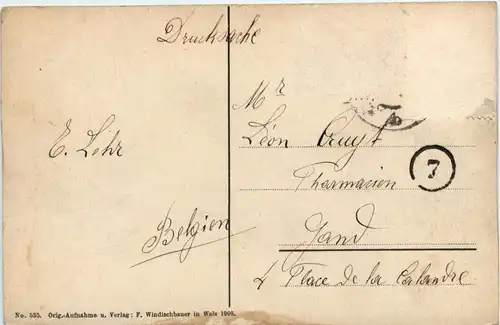 Drucksache
Mr
Léon Cruyt
Pharmacien
Gand
4 Place de la Calandre
E. Lehr
Belgien
7
No. 535. Orig.-Aufnahme u. Verlag: F. Windischbauer in Wels 1908.